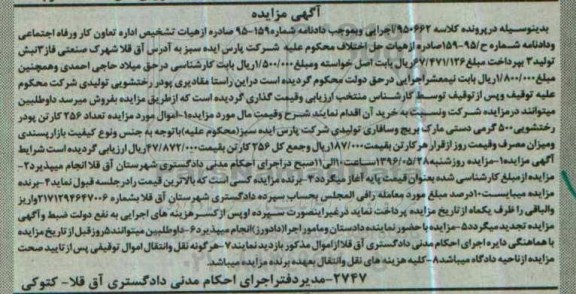 آگهی مزایده
بدینوسیله درپرونده کلاسه ۹۵۰۶۶۲اجرایی وبموجب دادنامه شماره۱۵۹-۹۵ صادره ازهیات تشخیص اداره تعاون کار ورفاه اجتماعی
ودادنامه شماره ح/۹۵-۱۵۹صادره ازهیات حل اختلاف محکوم علیه شرکت پارس ایده سبز به آدرس آق قلا شهرک صنعتی فاز۳نبش
تولید۳ بپرداخت مبلغ۶۷/۴۷۱/۱۳۶ریال بابت اصل خواسته ومبلغ۱/۵۰۰/۰۰۰ریال بابت کارشناسی درحق میلاد حاجی احمدی وهمچنین
مبلغ۱/۸۰۰/۰۰۰ریال بابت نیمعشراجرایی درحق دولت محکوم گردیده است دراین راستا مقادیری پودر رختشویی تولیدی شرکت محکوم
علیه توقیف وپس ازتوقیف توسط کارشناس منتخب ارزیابی وقیمت گذاری گردیده است که ازطریق مزایده بفروش میرسد داوطلبین
میتوانند درمزایده شرکت ونسبت به خرید آن اقدام نمایند شرح وقیمت مال مورد مزایده۱-اموال مورد مزایده تعداد ۲۵۶ کارتن پودر
رختشویی۵۰۰ گرمی دستی مارک بریچ وسافاری تولیدی شرکت پارس ایده سبز(محکوم علیه)باتوجه به جنس ونوع کیفیت بازارپسندی
ومیزان مصرف وقیمت روز ازقرار هرکارتن به بقیمت۱۸۷/۰۰۰ریال وجمع کل ۲۵۶ کارتن بقیمت۴۷/۸۷۲/۰۰۰ریال ارزیابی گردیده است شرایط
آگهی مزایده۱-مزایده روزشنبه ۱۳۹۶/۰۵/۲۸ساعت۱۰الی۱۱صبح دراجرای احکام مدنی دادگستری شهرستان آق قلا انجام میپذیرد۲-
مزایده ازمبلغ کارشناسی شده بعنوان قیمت پایه آغاز میگردد۳-برنده مزایده کسی است که بالاترین قیمت رادرجلسه قبول نماید۴-برنده
مزایده میبایست۱۰درصد مبلغ مورد معامله رافی المجلس بحساب سپرده دادگستری شهرستان آق قلا بشماره ۲۱۷۱۲۹۴۶۴۷۰۰۶واریز
والباقی را ظرف یکماه ازتاریخ مزایده پرداخت نماید درغیراینصورت سپرده اوپس ازکسرهزینه های اجرایی به نفع دولت ضبط وآگهی
مزایده تجدید میگردد۵-مزایده با حضور نماینده دادستان وماموراجرا(دادورز)انجام میپذیرد۶-داوطلبین میتوانند۵روزقبل ازتاریخ مزایده
با هماهنگی دایره اجرای احکام مدنی دادگستری آق قلاازاموال مذکور بازدید نمایند۷-هرگونه نقل وانتقال اموال توقیفی پس ازتایید صحت
مزایده ازناحیه دادگاه میباشد۸-کلیه هزینه های نقل وانتقال بعهده برنده مزایده میباشد.
۲۷۴۷-مدیردفتراجرای احکام مدنی دادگستری آق قلا- کتوکی